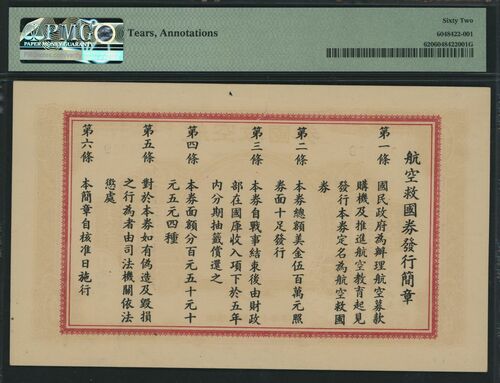 PMG
PAPER MONEY GUARANTY
Tears, Annotations
Sixty Two
6048422-001
6206048422001G
航空救國券發行簡章
第一條 國民政府為辦理航空募款
購機及推進航空教育起見
發行本券定名為航空救國
券
第二條 本券總額美金伍百萬元照
券面十足發行
第三條 本券自戰事結束後由財政
部在國庫收入項下於五年
內分期抽籤償還之
第四條 本券面額分百元五十元十
元五元四種
第五條 對於本券如有偽造及毀損
之行為者由司法機關依法
懲處
第六條 本簡章自核准日施行